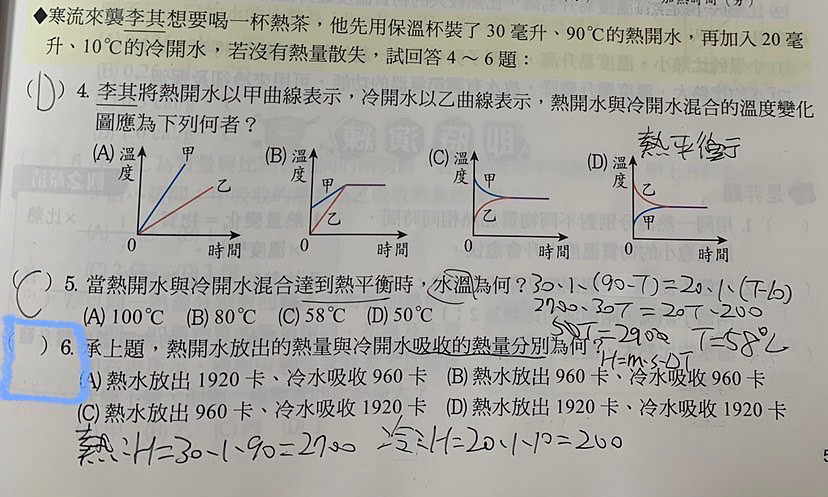 ◆寒流來襲李其想要喝一杯熱茶，他先用保溫杯裝了30毫升、90℃的熱開水，再加入20毫
升、10℃的冷開水，若沒有熱量散失，試回答4～6題：
(D) 4. 李其將熱開水以甲曲線表示，冷開水以乙曲線表示，熱開水與冷開水混合的溫度變化
圖應為下列何者？
熱平衡
(A) 溫度 甲 乙 0 時間
(B) 溫度 甲 乙 0 時間
(C) 溫度 甲 乙 0 時間
(D) 溫度 乙 甲 0 時間
(C) 5. 當熱開水與冷開水混合達到熱平衡時，水溫為何？30·1·(90-T)=20·1·(T-10)
(A) 100℃ (B) 80℃ (C) 58℃ (D) 50℃ 2700-30T=20T-200
50T=2900 T=58℃
( ) 6. 承上題，熱開水放出的熱量與冷開水吸收的熱量分別為何？
H=m·s·ΔT
(A) 熱水放出 1920 卡、冷水吸收 960 卡 (B) 熱水放出 960 卡、冷水吸收 960 卡
(C) 熱水放出 960 卡、冷水吸收 1920 卡 (D) 熱水放出 1920 卡、冷水吸收 1920 卡
熱:H=30·1·90=2700 冷:H=20·1·10=200